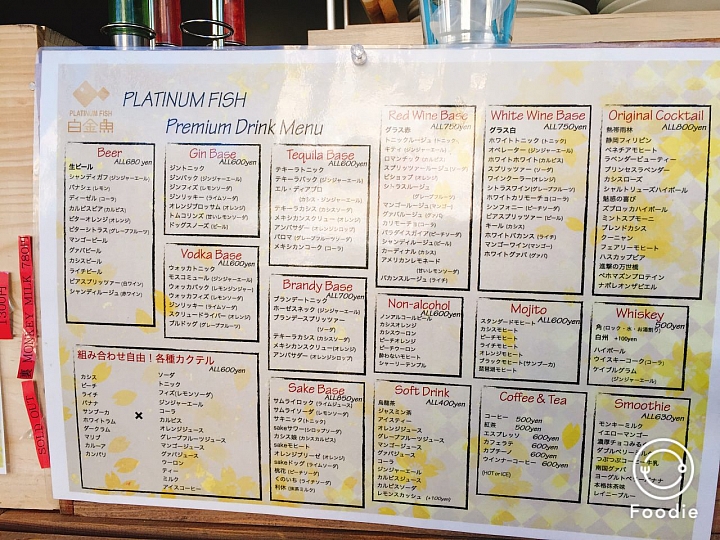 PLATINUM FISH
Premium Drink Menu
PLATINUM FISH
白金魚
Beer
ALL680yen
生ビール
シャンディガフ(ジンジャーエール)
パナシェ(レモン)
ディーゼル(コーラ)
カルピスビア(カルピス)
ビターオレンジ(オレンジ)
ビターシトラス(グレープフルーツ)
マンゴービール
グァバビール
カシスビール
ライチビール
ビアスプリッツァー(白ワイン)
シャンディルージュ(赤ワイン)
Gin Base
ALL600yen
ジントニック
ジンバック(ジンジャーエール)
ジンフィズ(レモンソーダ)
ジンリッキー(ライムソーダ)
オレンジブロッサム(オレンジ)
トムコリンズ(甘いレモンソーダ)
ドッグズノーズ(ビール)
Vodka Base
ALL600yen
ウォッカトニック
モスコミュール(ジンジャーエール)
ウォッカバック(レモンジンジャー)
ウォッカフィズ(レモンソーダ)
ジンリッキー(ライムソーダ)
スクリュードライバー(オレンジ)
ブルドッグ(グレープフルーツ)
Tequila Base
ALL600yen
テキーラトニック
テキーラバック(ジンジャーエール)
エル・ディアブロ
(カシス・ジンジャーエール)
テキーラカシス(カシスオレンジ)
メキシカンスクリュー(オレンジ)
アンバサダー(オレンジシロップ)
パロマ(グレープフルーツソーダ)
メキシカンコーク(コーラ)
Brandy Base
ALL700yen
ブランデートニック
ホーゼスネック(ジンジャーエール)
ブランデースプリッツァー
(ソーダ)
テキーラカシス(カシスオレンジ)
メキシカンスクリュー(オレンジ)
アンバサダー(オレンジシロップ)
Red Wine Base
ALL750yen
グラス赤
トニックルージュ(トニック)
キティ(ジンジャーエール)
ロマンチック(カルピス)
スプリッツァールージュ(ソーダ)
ビショップ(オレンジ)
シトラスルージュ
(グレープフルーツ)
マンゴールージュ(マンゴー)
グァバルージュ(グァバ)
カリモーチョ(コーラ)
パラダイスガイア(ピーチソーダ)
シャンディルージュ(ビール)
カーディナル(カシス)
アメリカンレモネード
(甘いレモンソーダ)
バカンスルージュ(ライチ)
White Wine Base
ALL750yen
グラス白
ホワイトトニック(トニック)
オペレーター(ジンジャーエール)
ホワイトホワイト(カルピス)
スプリッツァー(ソーダ)
ワインクーラー(オレンジ)
シトラスワイン(グレープフルーツ)
ホワイトカリモーチョ(コーラ)
シンフォニー(ピーチシロップ)
ビアスプリッツァー(ビール)
キール(カシス)
ホワイトバカンス(ライチ)
マンゴーワイン(マンゴー)
ホワイトグァバ(グァバ)
Original Cocktail
ALL800yen
熱帯雨林
静岡フィリピン
ベネチアモヒート
ラベンダービューティー
プリンセスラベンダー
カシスローズ
シャルトリューズハイボール
魅惑の喜び
ズブロッカハイボール
ミントスプモーニ
ブレンドカシス
クーニャン
フェアリーモヒート
ハスカップビア
進撃の万世橋
ベホマズンプロテイン
ナポレオンザビエル
Non-alcohol
ALL600yen
ノンアルコールビール
カシスオレンジ
カシスウーロン
ピーチオレンジ
ピーチウーロン
酔わないモヒート
シャーリーテンプル
Mojito
ALL600yen
スタンダードモヒート
カシスモヒート
ピーチモヒート
ライチモヒート
オレンジモヒート
ブラックモヒート(サンブーカ)
琵琶湖モヒート
Whiskey
500yen
角(ロック・水・お湯割り)
白州 +100yen
ハイボール
ウイスキーコーク(コーラ)
ケイブルグラム
(ジンジャーエール)
組み合わせ自由!各種カクテル
ALL600yen
カシス
ピーチ
ライチ
バナナ
サンブーカ
ホワイトラム
ダークラム
マリブ
カルーア
カンパリ
×
ソーダ
トニック
フィズ(レモンソーダ)
ジンジャーエール
コーラ
カルピス
オレンジジュース
グレープフルーツジュース
マンゴージュース
グァバジュース
ウーロン
ティー
ミルク
アイスコーヒー
Sake Base
ALL850yen
サムライロック(ライムジュース)
サムライソーダ(レモンソーダ)
サキニック(トニック)
sakeサワー(シロップソーダ)
カシス娘(カシスカルピス)
sakeモヒート
オレンジブリーゼ(オレンジ)
sakeドッグ(ライムソーダ)
桃花(ピーチソーダ)
くのいち(ライチソーダ)
利休(抹茶ミルク)
Soft Drink
ALL400yen
烏龍茶
ジャスミン茶
アイスティー
オレンジジュース
グレープフルーツジュース
マンゴージュース
グァバジュース
コーラ
ジンジャーエール
カルピスジュース
カルピスソーダ
レモンスカッシュ (+100yen)
Coffee & Tea
コーヒー 500yen
紅茶 500yen
エスプレッソ 600yen
カフェラテ 600yen
カプチーノ 600yen
ウインナーコーヒー 600yen
(HOT or ICE)
Smoothie
ALL630yen
モンキーミルク
イエローマンゴー
濃厚チョコみる
ダブルベリー
つぶつぶコ
南国グァバ
ヨーグルト
本格抹茶味
レイニーブルー
1300円
裏 MONKEY MILK 780円
SOLD OUT
Foodie